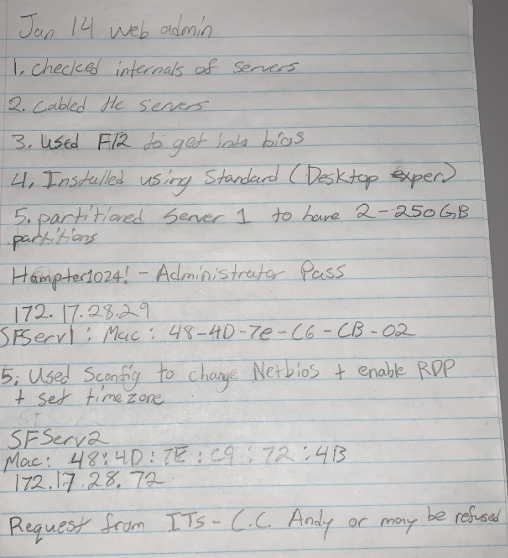 Jan 14 web admin
1. Checked internals of servers
2. Cabled the servers
3. Used F12 to get into bios
4. Installed using Standard (Desktop exper)
5. partitioned Server 1 to have 2-250GB
partitions
Hampter1024! - Administrator Pass
172.17.28.29
SFServ1: Mac: 48-4D-7e-C6-CB-02
5. Used Sconfig to change Netbios + enable RDP
+ set timezone
SFServ2
Mac: 48:4D:7E:C9:72:4B
172.17.28.72
Request from ITs - C.C. Andy or may be refused